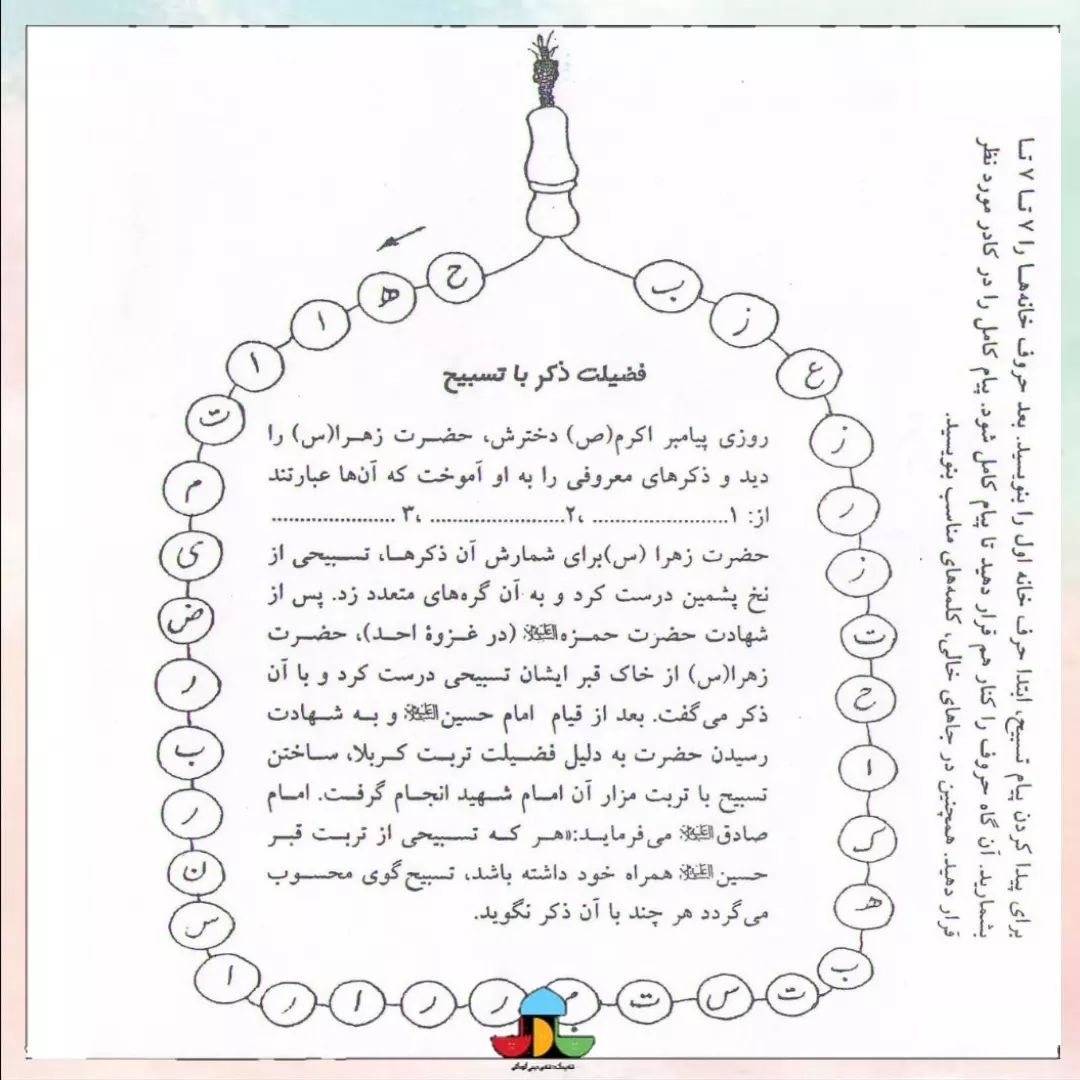 فضیلت ذکر با تسبیح
روزی پیامبر اکرم(ص) دخترش، حضرت زهرا(س) را
دید و ذکرهای معروفی را به او آموخت که آن‌ها عبارتند
از: ۱....................... ،۲....................... ،۳ .....................
حضرت زهرا (س)برای شمارش آن ذکرها، تسبیحی از
نخ پشمین درست کرد و به آن گره‌های متعدد زد. پس از
شهادت حضرت حمزه (در غزوهٔ احد)، حضرت
زهرا(س) از خاک قبر ایشان تسبیحی درست کرد و با آن
ذکر می‌گفت. بعد از قیام امام حسین و به شهادت
رسیدن حضرت به دلیل فضیلت تربت کربلا، ساختن
تسبیح با تربت مزار آن امام شهید انجام گرفت. امام
صادق می‌فرماید:«هر که تسبیحی از تربت قبر
حسین همراه خود داشته باشد، تسبیح‌گوی محسوب
می‌گردد هر چند با آن ذکر نگوید.
برای پیدا کردن پیام تسبیح، ابتدا حرف خانه اول را بنویسید. بعد حروف خانه‌ها را ۷ تا ۷ تا
بشمارید. آن گاه حروف را کنار هم قرار دهید تا پیام کامل شود. پیام کامل را در کادر مورد نظر
قرار دهید. همچنین در جاهای خالی، کلمه‌های مناسب بنویسید.
ح
ه
ا
ا
ت
م
ی
ض
ر
ب
ر
ن
س
ا
ر
ا
ر
ر
م
ت
س
ت
ب
ه
ک
ا
ح
ت
ز
ر
ز
ع
ز
ب